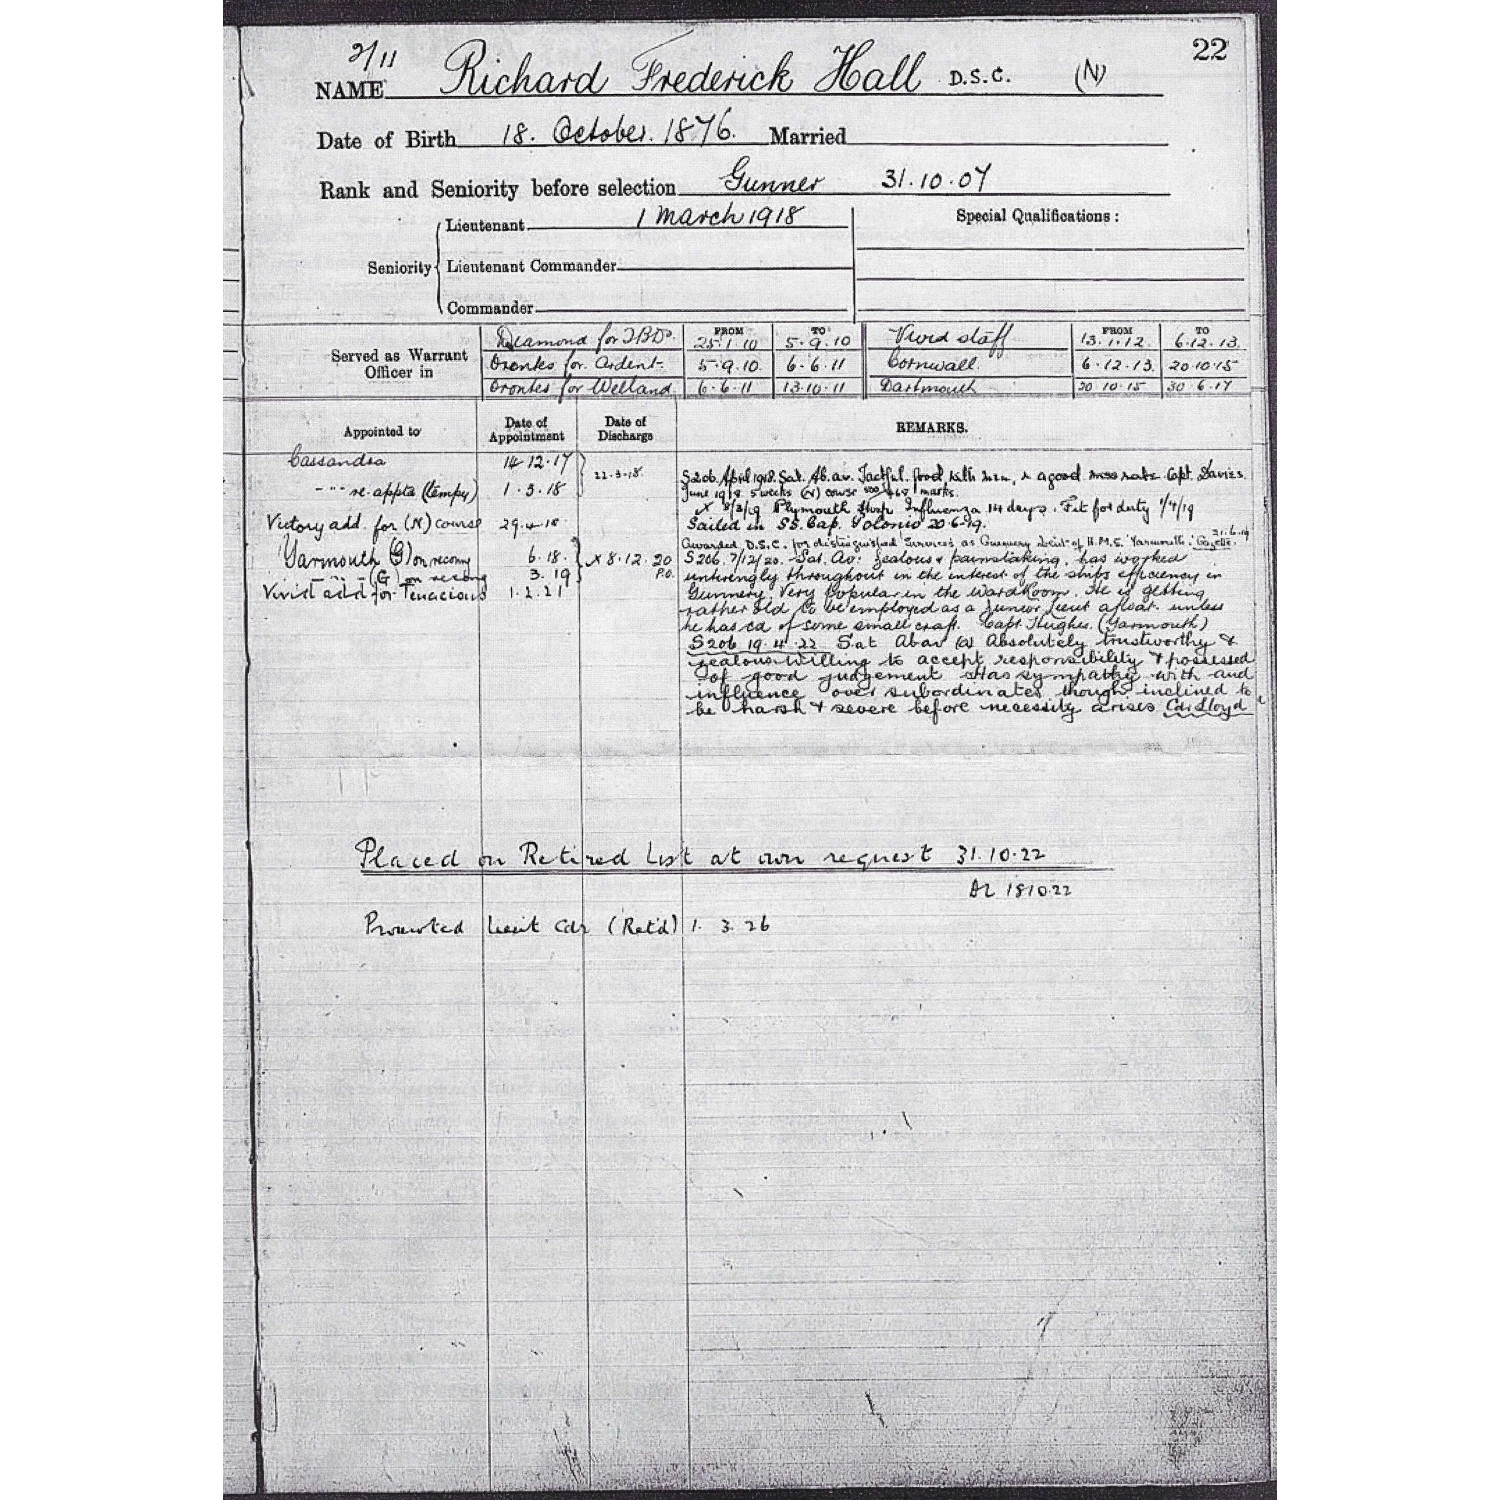 22
2/11
NAME Richard Frederick Hall D.S.C. (N)
Date of Birth 18. October. 1876. Married
Rank and Seniority before selection Gunner 31.10.07
Seniority
Lieutenant 1 March 1918
Lieutenant Commander
Commander
Special Qualifications :
Served as Warrant Officer in
FROM TO FROM TO
Diamond for T.B.Ds. 25.1.10 5.9.10 Vivid staff 13.1.12. 6.12.13.
Orontes for Ardent 5.9.10. 6.6.11 Cornwall 6.12.13. 20.10.15
Orontes for Welland 6.6.11 13.10.11 Dartmouth 20.10.15 30.6.17
Appointed to Date of Appointment Date of Discharge REMARKS.
Cassandra 14.12.17 22.3.18
-"- re-appta (tempy) 1.3.18
Victory add. for (N) course 29.4.18
Yarmouth (G) on recomn 6.18. X 8.12.20
(G) on recomg 3.19 P.O.
Vivid add for Tenacious 1.2.21
S206. April 1918. Sat. Ab. av. Tactful. Good with men, & a good mess mate. Capt. Davies.
June 1918 5 weeks (N) course marks.
X 8/3/19 Plymouth Hosp Influenza 14 days. Fit for duty 1/4/19
Sailed in SS. Cap. Polonio 20.6.19.
Awarded D.S.C. for distinguished services as Gunnery Lieut of H.M.S. Yarmouth. Gazette 21.6.19
S206. 7/12/20. Sat. Av. Zealous & painstaking, has worked
untiringly throughout in the interest of the ships efficiency in
Gunnery. Very popular in the Ward Room. He is getting
rather old to be employed as a Junior Lieut afloat. unless
he has cd of some small craft. Capt. Hughes. (Yarmouth)
S206 19.4.22 Sat Abav (a) Absolutely trustworthy &
zealous. Willing to accept responsibility & possessed
of good judgement. Has sympathy with and
influence over subordinates though inclined to
be harsh & severe before necessity arises. Cdr Lloyd
Placed on Retired List at own request 31.10.22
AL 18.10.22
Promoted Lieut Cdr (Ret'd) 1.3.26